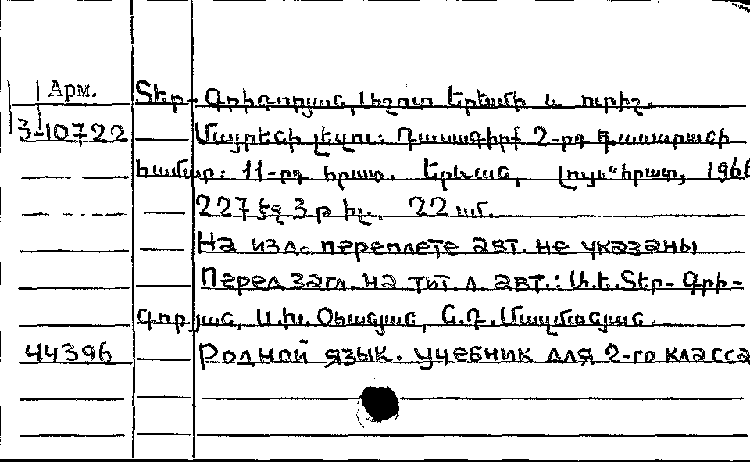 Арм.
Տեր-Գրիգորյան, Աշոտ Երեմի և ուրիշ.
3-10722 Մայրենի լեզու: Դասագիրք 2-րդ դասարանի
համար: 11-րդ հրատ. Երևան, Լույս հրատ, 1966
227 էջ 3 թ իլ. 22 սմ.
На изд. переплете авт. не указаны
Перед загл. на тит. л. авт.: Ա.Ե.Տեր-Գրի-
գորյան, Ա.Խ.Օհանյան,
44396 Родной язык. Учебник для 2-го класса